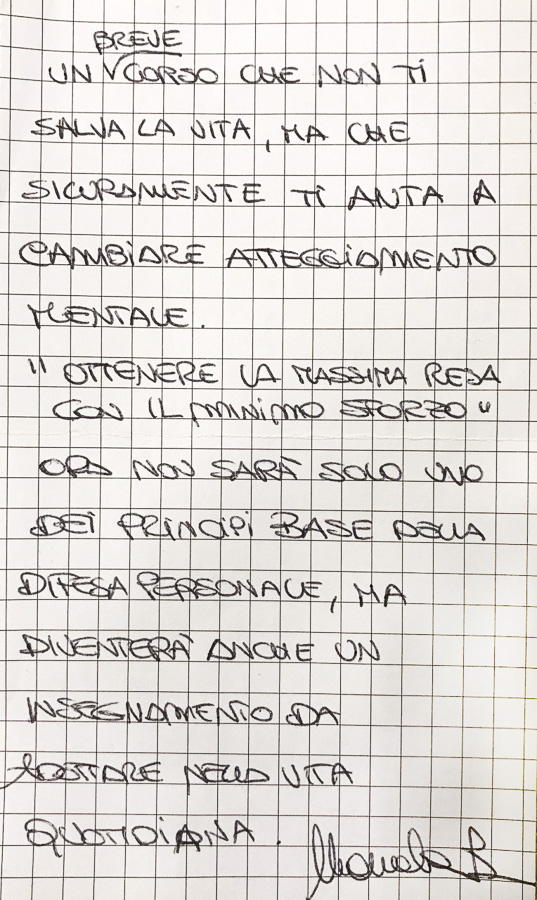 BREVE
UN √CORSO CHE NON TI
SALVA LA VITA, MA CHE
SICURAMENTE TI AIUTA A
CAMBIARE ATTEGGIAMENTO
MENTALE.
"OTTENERE LA MASSIMA RESA
CON IL MINIMO SFORZO"
ORA NON SARÀ SOLO UNO
DEI PRINCIPI BASE DELLA
DIFESA PERSONALE, MA
DIVENTERÀ ANCHE UN
INSEGNAMENTO DA
ADOTTARE NELLA VITA
QUOTIDIANA.